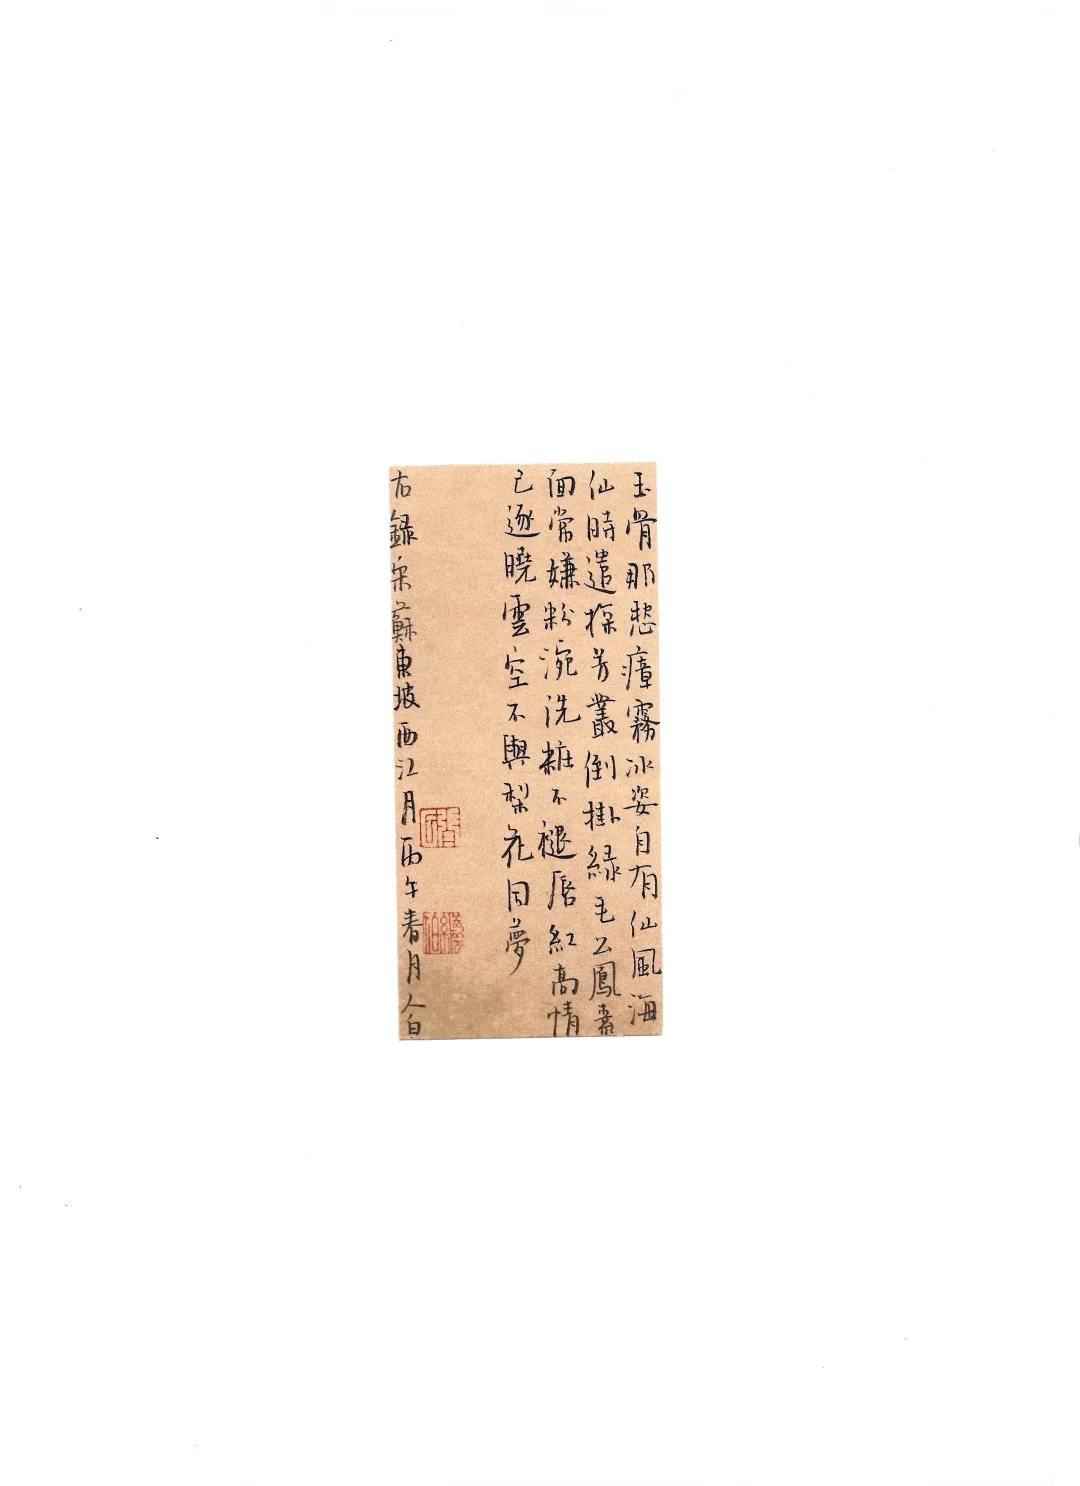 玉骨那愁瘴霧冰姿自有仙風海
仙時遣探芳叢倒掛緑毛幺鳳素
面常嫌粉涴洗粧不褪唇紅高情
已逐曉雲空不與梨花同夢
右録宋蘇東坡西江月丙午春月人自